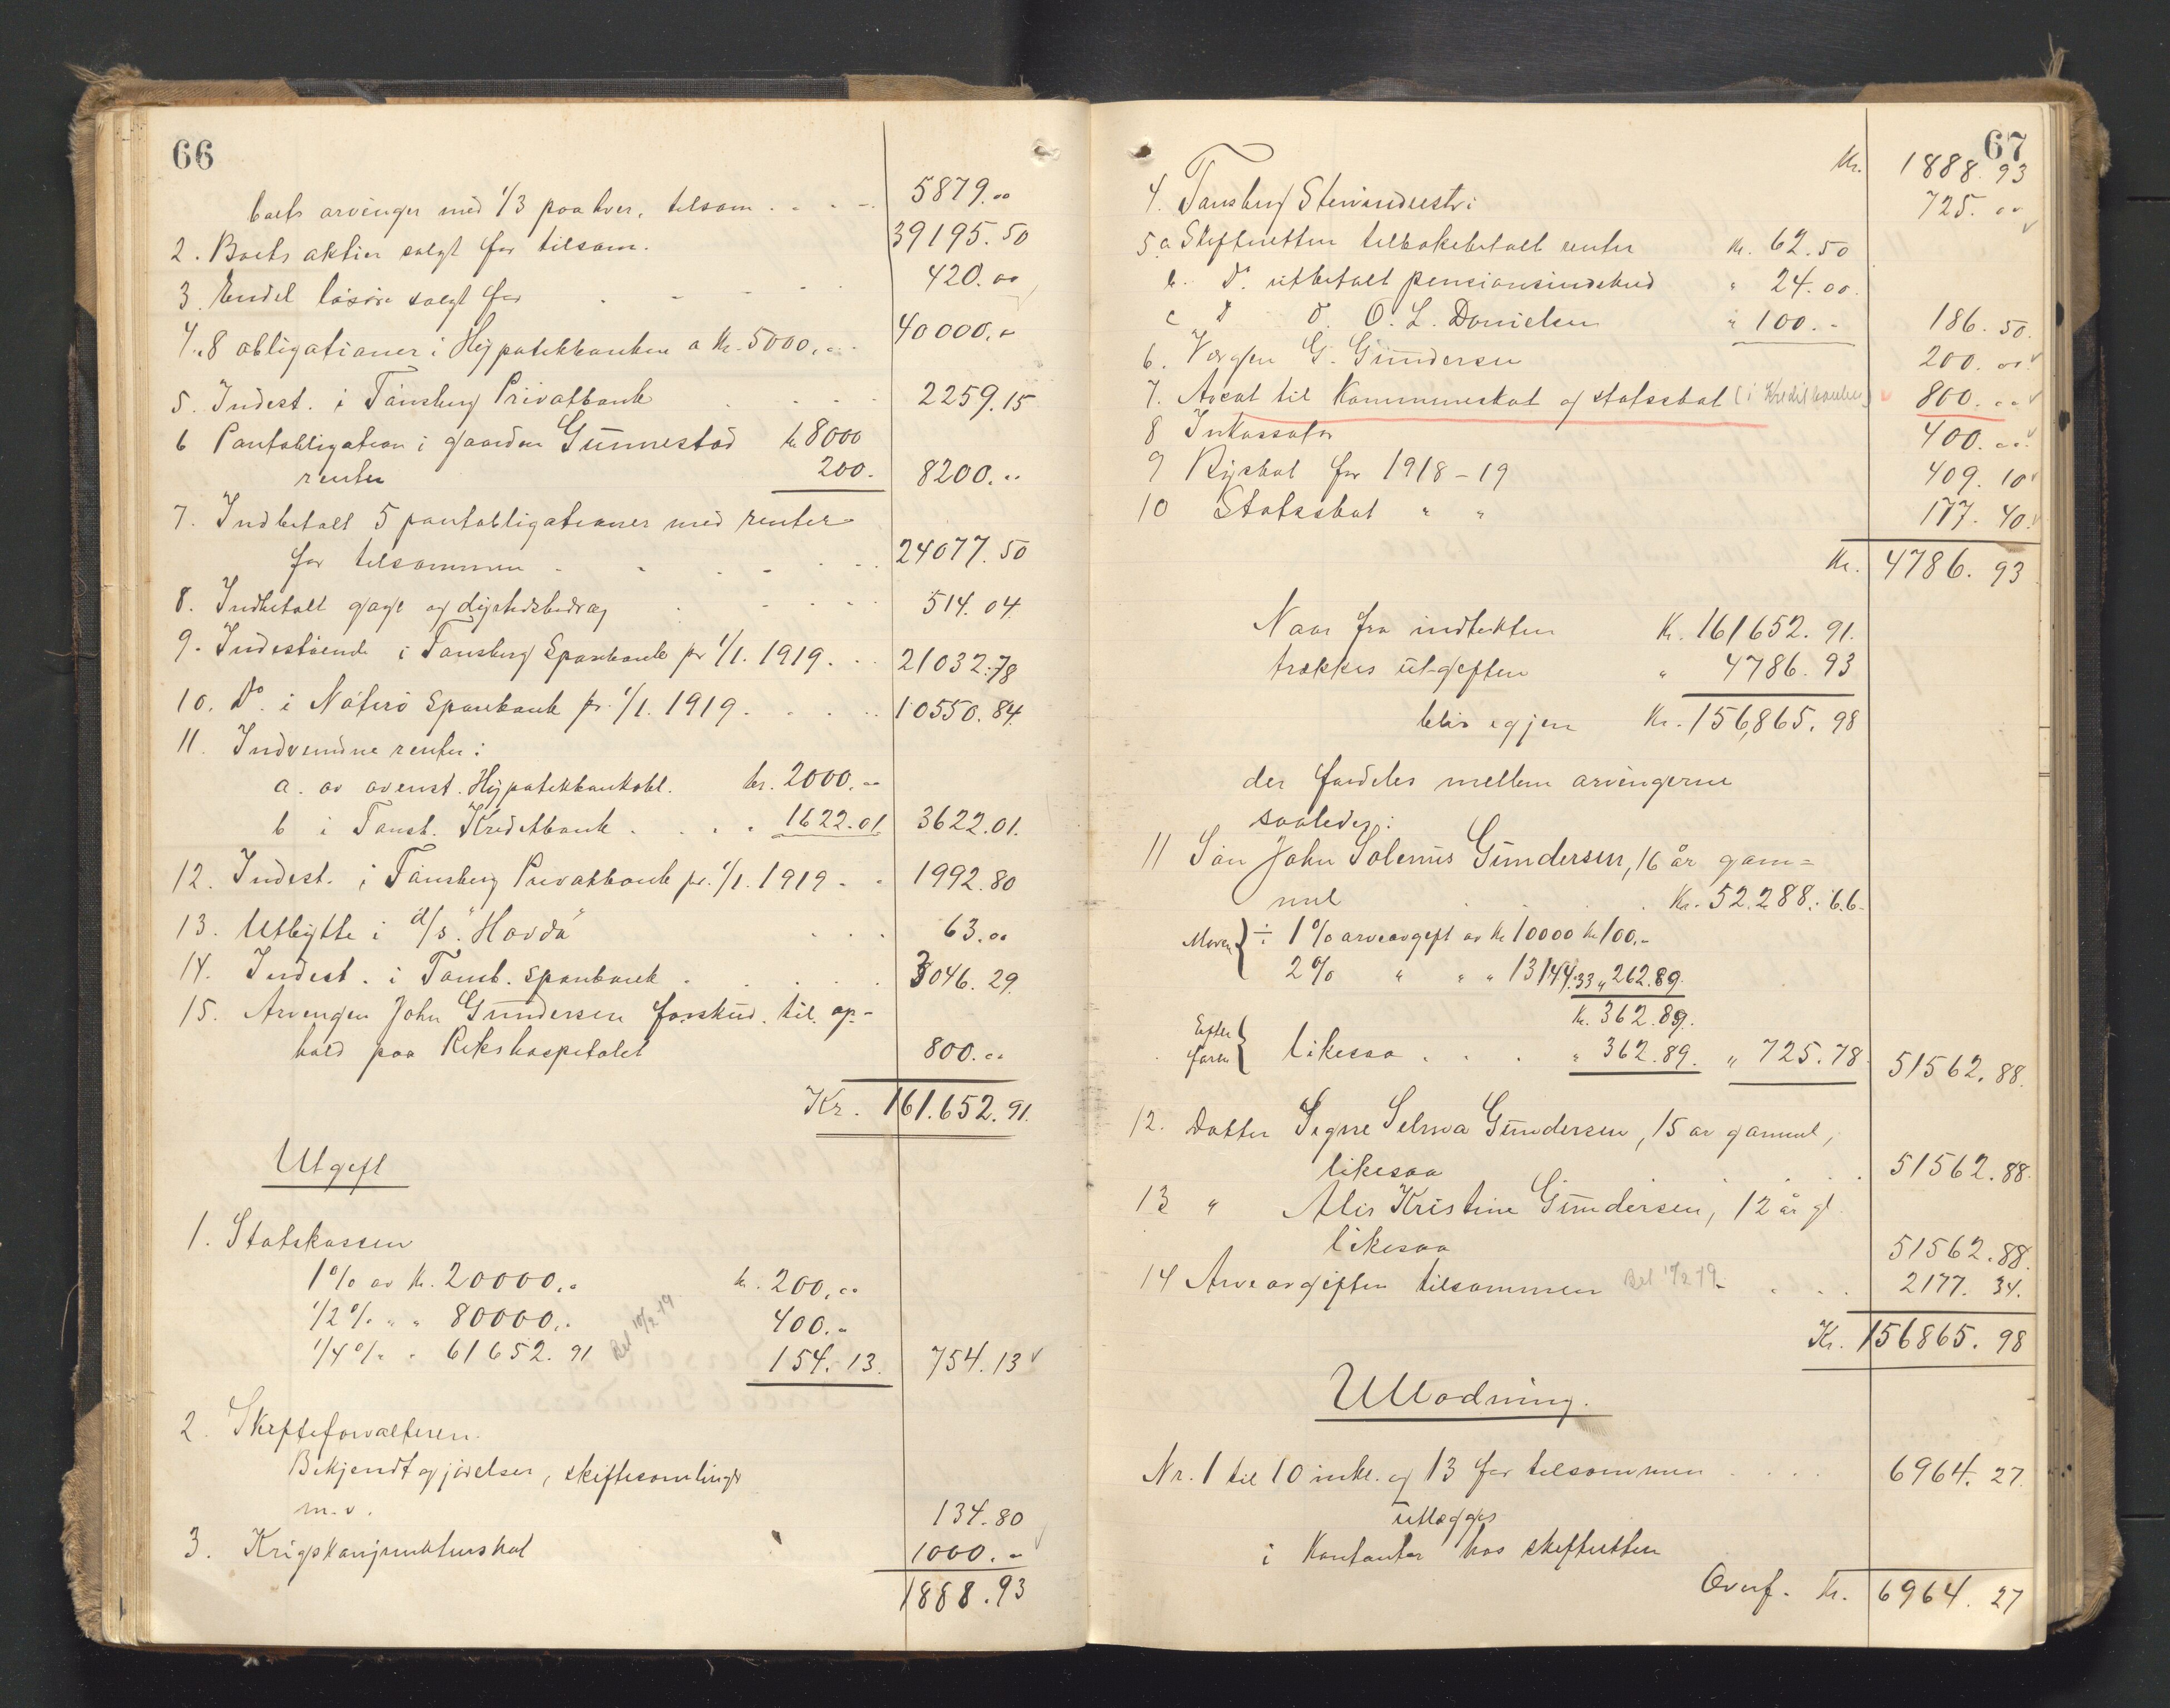 66
boets arvinger med 1/3 paa hver, tilsam. . . - 5879.00
2. Boets aktier solgt for tilsam. 39195.50
3. Endel lösöre solgt for . - - . . 420.00
4. 8 obligationer i Hypotekbanken a kr. 5000,00 40000.-
5. Indest. i Tønsberg Privatbank . . . . 2259.15
6 Pantobligation i gaarden Gunnestad kr 8000
renter 200. 8200.00
7. Indbetalt 5 pantobligationer med renter
for tilsammen - . . - . . 24077.50
8. Indbetalt gage og dyrtidsbidrag . . . . 514.04.
9. Indestående i Tønsberg Sparebank pr 1/1. 1919. . . 21032.78
10. Do. i Nøterö Sparebank pr. 1/1. 1919. . . . . 10550.84.
11. Indvundne renter:
a. av ovenst. Hypotekbankobl. kr. 2000.00
b i Tønsb. Kreditbank . . . " 1622.01 3622.01.
12. Indest. i Tønsberg Privatbank pr. 1/1. 1919 - . 1992.80
13. Utbytte i A/S. "Havda" . . . 63.00
14. Indest. i Tønsb. Sparebank . . . . . 3046.29.
15. Arvingen John Gundersen forskud. til op-
hold paa Rikshospitalet 800.00
Kr. 161.652.91.
Utgift
1. Statskassen
1% av kr. 20000.00 kr. 200.00
1/2% " " 80000.. 400.-
1/4% " 61652.91 Bet 10/2-19 154.13. 754.13
2. Skifteforvalteren.
Bekjendtgjörelser, skiftesamlinger
m.v. 134.80
3. Krigskonjunkturskat 1000.-
1888.93
67
Kr. 1888.93
4. Tønsberg Stenindustri 725.00
5.a Skifteretten tilbakebetalt renter kr. 62.50
b. Do. utbetalt pensionsindskud " 24.00.
c Do do. O. L. Danielsen " 100.- 186.50.
6. Vergen G. Gundersen 200.00
7. Avsat til Kommuneskat og statsskat (i Kreditbanken) 800.00
8 Inkassator 400.00
9 Byskat for 1918-19 409.10
10 Statsskat " " 177.40.
Kr. 4786.93
Naar fra indtekten K. 161652.91.
trækkes utgiften " 4786.93
blir igjen Kr. 156,865.98
der fordeles mellem arvingerne
saaledes:
11 Sön John Solenus Gundersen, 16 år gam=
mel . . . Kr. 52.288.66.
Moren } ÷ 1% arveavgift av kr 10000 kr 100.-
2% " " " 13144.33 " 262.89.
Kr. 362.89.
Efter faren { likesaa . . . " 362.89. " 725.78. 51562.88.
12. Datter Signe Selma Gundersen, 15 år gammel,
likesaa . . . 51562.88.
13 " Alis Kristine Gundersen, 12 år gl
likesaa 51562.88.
14 Arveavgiften tilsammen Bet 10/2 19. - . . . 2177.34.
Kr. 156865.98
Utlodning.
Nr. 1 til 10 inkl. og 13 for tilsammen . . . . 6964.27.
utlægges
i Kontanter hos skifteretten
Overf. Kr. 6964.27